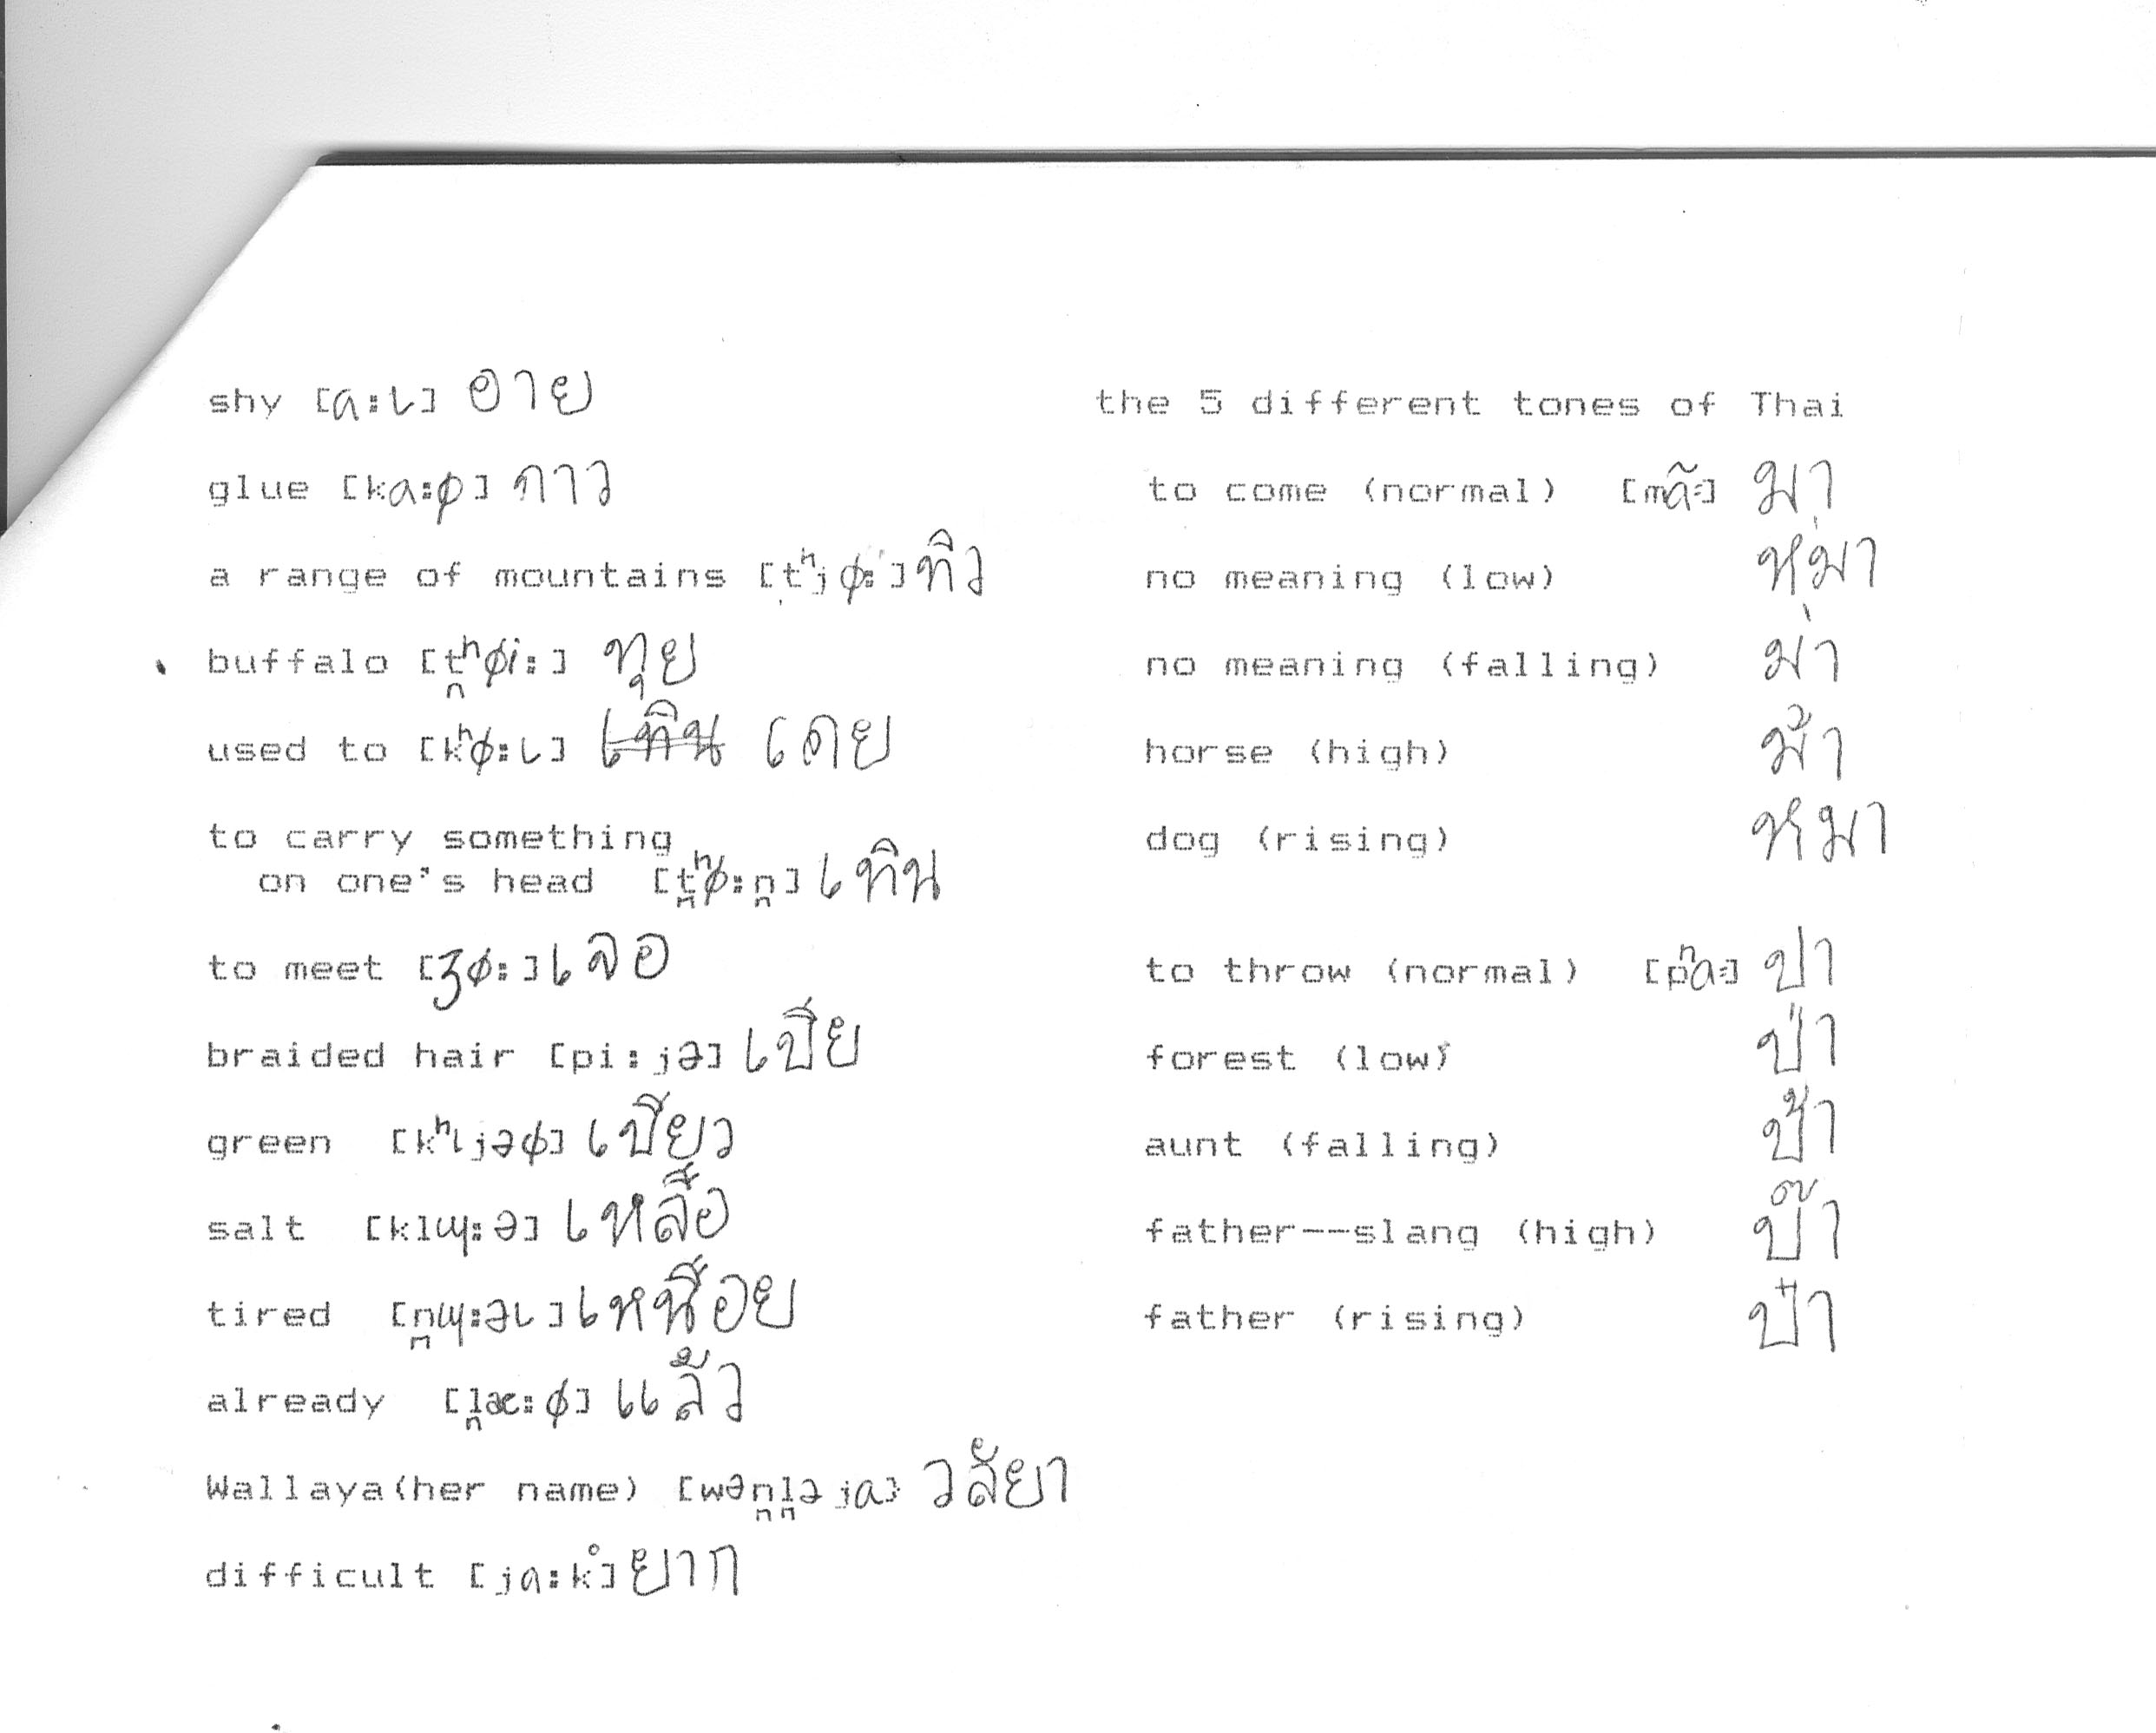 shy [a:ɩ] อาย
glue [ka:φ] กาว
a range of mountains [tʰjφ:] ทิว
buffalo [t̪ʰφi:] ทุย
used to [kʰφ:ɩ] เทิน เคย
to carry something
on one's head [t̪ʰφ:n̪] เทิน
to meet [ʒφ:] เจอ
braided hair [pi:jə] เปีย
green [kʰɩjəφ] เขียว
salt [klɰ:ə] เหลือ
tired [n̪ɰ:əɩ] เหนื่อย
already [l̪æ:φ] แล้ว
Wallaya(her name) [wən̪l̪əja] วลัยา
difficult [ja:k̊] ยาก
the 5 different tones of Thai
to come (normal) [mã:] มา
no meaning (low) หม่า
no meaning (falling) ม่า
horse (high) ม้า
dog (rising) หมา
to throw (normal) [pʰa:] ปา
forest (low) ป่า
aunt (falling) ป้า
father--slang (high) ป๊า
father (rising) ป๋า